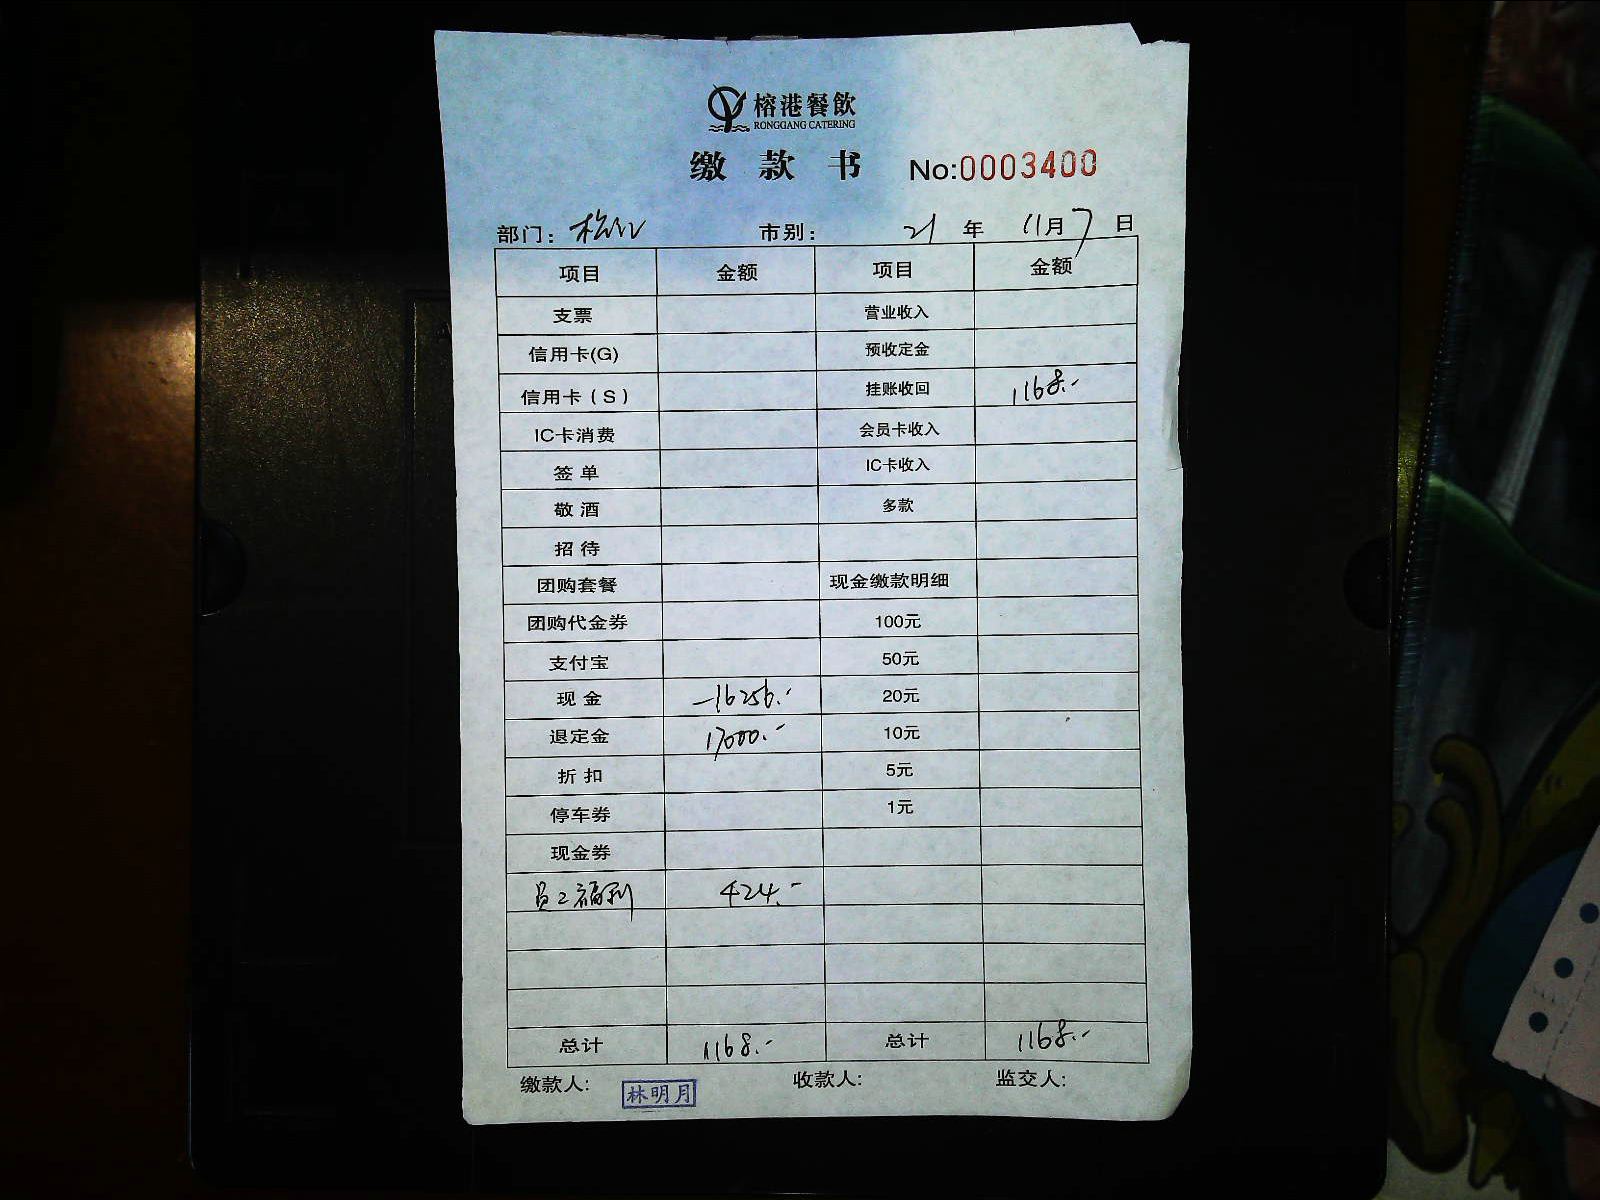 榕港餐飲
RONGGANG CATERING
缴款书 No:0003400
部门: 市别: 21年 11月7日
项目 金额 项目 金额
支票 营业收入
信用卡(G) 预收定金
信用卡(S) 挂账收回 1168.-
IC卡消费 会员卡收入
签单 IC卡收入
敬酒 多款
招待
团购套餐 现金缴款明细
团购代金券 100元
支付宝 50元
现金 -16256.- 20元
退定金 17000.- 10元
折扣 5元
停车券 1元
现金券
员工福利 424.-
总计 1168.- 总计 1168.-
缴款人: 林明月 收款人: 监交人: